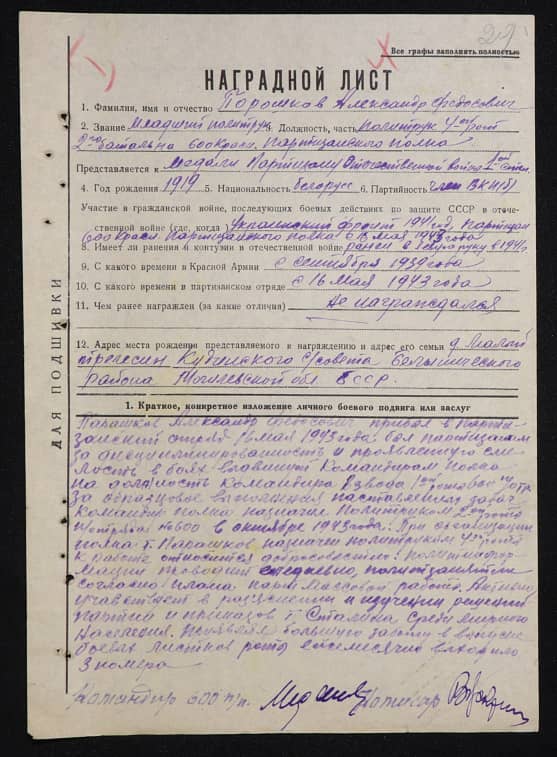 29
Все графы заполнять полностью
НАГРАДНОЙ ЛИСТ
1. Фамилия, имя и отчество Порошков Александр Федосович
2. Звание Младший политрук 3. Должность, часть политрук 4ой роты
2го батальона 600 Краен. Партизанского полка
Представляется к медали Партизану Отечественной войны 1ой степ.
4. Год рождения 1919 5. Национальность белорус 6. Партийность член ВКП(б)
Участие в гражданской войне, последующих боевых действиях по защите СССР в отече-
ственной войне (где, когда) Украинский фронт 1941 г, Партизан
600 Партизанского полка 16 мая 1943 года
8. Имеет ли ранения и контузии в отечественной войне ранен в руку в 1941
9. С какого времени в Красной Армии с сентября 1939 года
10. С какого времени в партизанском отряде с 16 мая 1943 года
11. Чем ранее награжден (за какие отличия) Не награждался
12. Адрес места рождения представляемого к награждению и адрес его семьи д. Малой
Кудинского с/совета Белыничского
района Могилевской обл. БССР.
ДЛЯ ПОДШИВКИ
1. Краткое, конкретное изложение личного боевого подвига или заслуг
Парашков Александр Федосович прибыл в парти-
занский отряд 16 мая 1943 года. был партизаном
за дисциплинированность и проявленную сме-
лость в боях командиром полка
на должность командира взвода 1ой роты
За образцовое выполнение поставленных задач
Командир полка назначил политруком 2ой роты
отряда №600 в октябре 1943 года. При организации
полка т. Парашков назначен политруком 4ой роты
К работе относится добросовестно. политинфор-
мации проводит ежедневно, политзанятия
согласно плана парт. массовой работы. Активно
участвует в разъяснении и изучении решений
партии и приказов т. Сталина среди мирного
населения. Проявлял большую заботу в выпуске
боевых листков роты ежемесячно выходило
3 номера
Командир 600 п/п. Комиссар